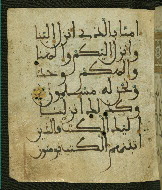 امنا بالذى انزل الينا
وانزل اليكم والهنا
والهكم وحد
ونحن له مسلمون
وكذلك انزلنا ا
ليك الكتب فالذين
اتينهم الكتب يومنون